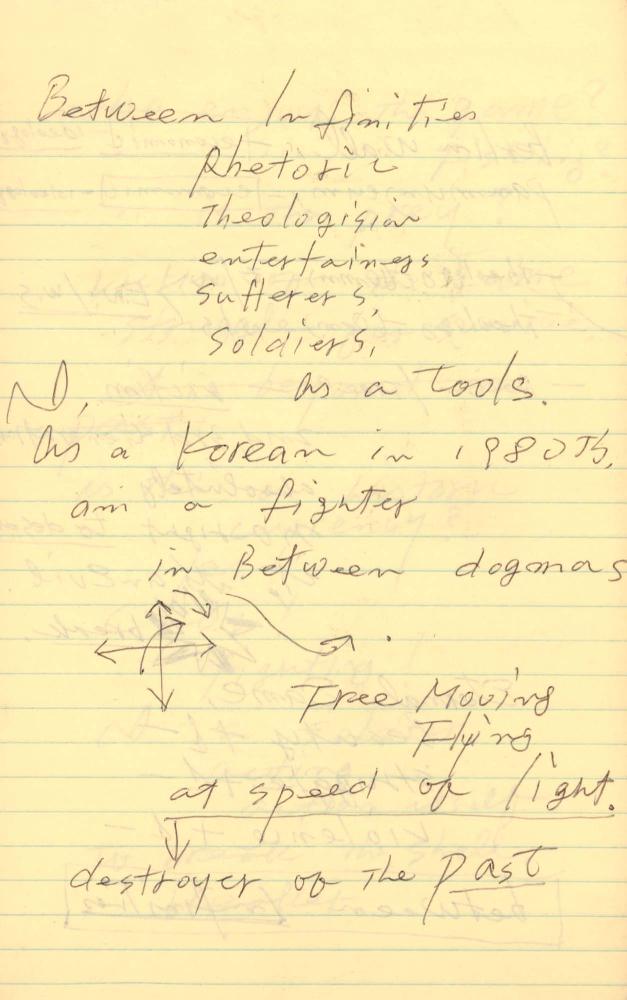 Between Infinities
Rhetoric
Theologisian
entertainers
Sufferers,
Soldiers,
As a Tools.
As a Korean in 1980Th,
am a fighter
in Between dogmas
Free Moving
Flying
at speed of light.
destroyer of The Past